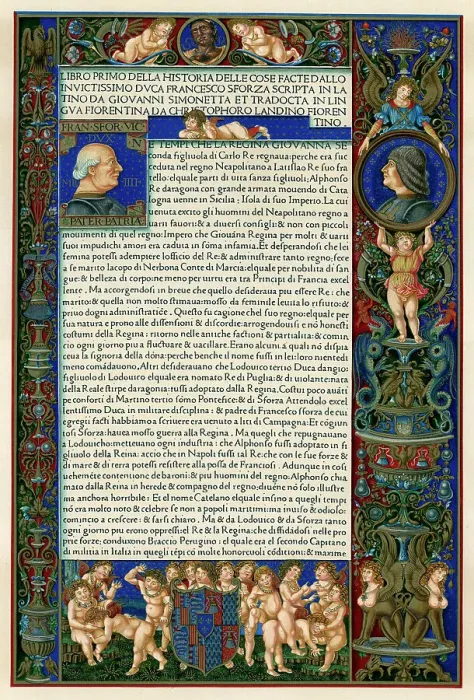 LIBRO PRIMO DELLA HISTORIA DELLE COSE FACTE DALLO
INVICTISSIMO DVCA FRANCESCO SFORZA SCRIPTA IN LA
TINO DA GIOVANNI SIMONETTA ET TRADOCTA IN LIN
GVA FIORENTINA DA CHRISTOPHORO LANDINO FIOREN
TINO.
FRAN·SFOR·VIC
DVX
PATER·PATRIAE
E TEMPI CHE LA REGINA GIOVANNA SE
conda figliuola di Carlo Re regnaua: perche era suc
ceduta nel regno Neapolitano a Latislao Re suo fra
tello: elquale parti di uita sanza figliuoli: Alphonso
Re daragona con grande armata mouendo di Cata
logna uenne in Sicilia: Isola di suo Imperio. La cui
uenuta excito gli huomini del Neapolitano regno a
uarii fauori: & a diuersi consigli: & non con piccoli
mouimenti di quel regno: Impero che Giouãna Regina per molti & uarii
suoi impudichi amori era caduta in sõma infamia. Et desperandosi che lei
femina potessi adempiere lofficio del Re: & administrare tanto regno: fece
a se marito Iacopo di Nerbona Conte di Marcia: elquale per nobilita di san
gue: & belleza di corpo: ne meno per uirtu era tra Principi di Francia excel
lente. Ma accorgendosi in breue che quello desideraua piu essere Re: che
marito: & quella non molto stimaua: mosso da feminile leuita lo rifiuto: &
priuo dogni administratiõe. Questo fu cagione chel suo regno: elquale per
sua natura e prono alle dissensioni & discordie: arrogendouisi e nõ honesti
costumi della Regina: ritorno nelle antiche factioni & partialita: & comin
cio ogni giorno piu a fluctuare & uacillare. Erano alcuni a quali nõ dispia
ceua la signoria della dõna: perche benche il nome fussi in lei: loro nientedi
meno comãdauono. Altri desiderauano che Lodouico tertio Duca dangio:
figliuolo di Lodouico elquale era nomato Re di Puglia: & di uiolante: nata
della Reale stirpe daragona: fussi adoptato dalla Regina. Costui poco auãti
pe conforti di Martino tertio sõmo Pontefice: & di Sforza Attendolo excel
lentissimo Duca in militare disciplina: & padre di Francesco sforza de cui
egregii facti habbiamo a scriuere era uenuto a liti di Campagna: Et cõgiun
tosi Sforza: hauea mosso guerra alla Regina. Ma quegli che repugnauano
a Lodouicho: metteuano ogni industria: che Alphonso fussi adoptato in fi
gliuolo della Reina: accio che in Napoli fussi tal Re: che con le sue forze &
di mare & di terra potessi resistere alla possa de Franciosi. Adunque in cosi
uehemente contentione de baroni: & piu huomini del regno: Alphonso chia
mato dalla Reina in herede & compagno del regno: diuẽne nõ solo illustre
ma anchora horribile: Et el nome Catelano elquale insino a quegli tempi
nõ era molto noto & celebre se non a popoli marittimi: ma inuiso & odioso:
comincio a crescere: & farsi chiaro. Ma & da Lodouico & da Sforza tanto
ogni giorno piu erono oppressi: el Re & la Regina: che diffidãdosi nelle pro
prie forze: conduxono Braccio Perugino: el quale era el secondo Capitano
di militia in Italia in quegli tẽpi cõ molte honoreuoli cõditioni: & maxime